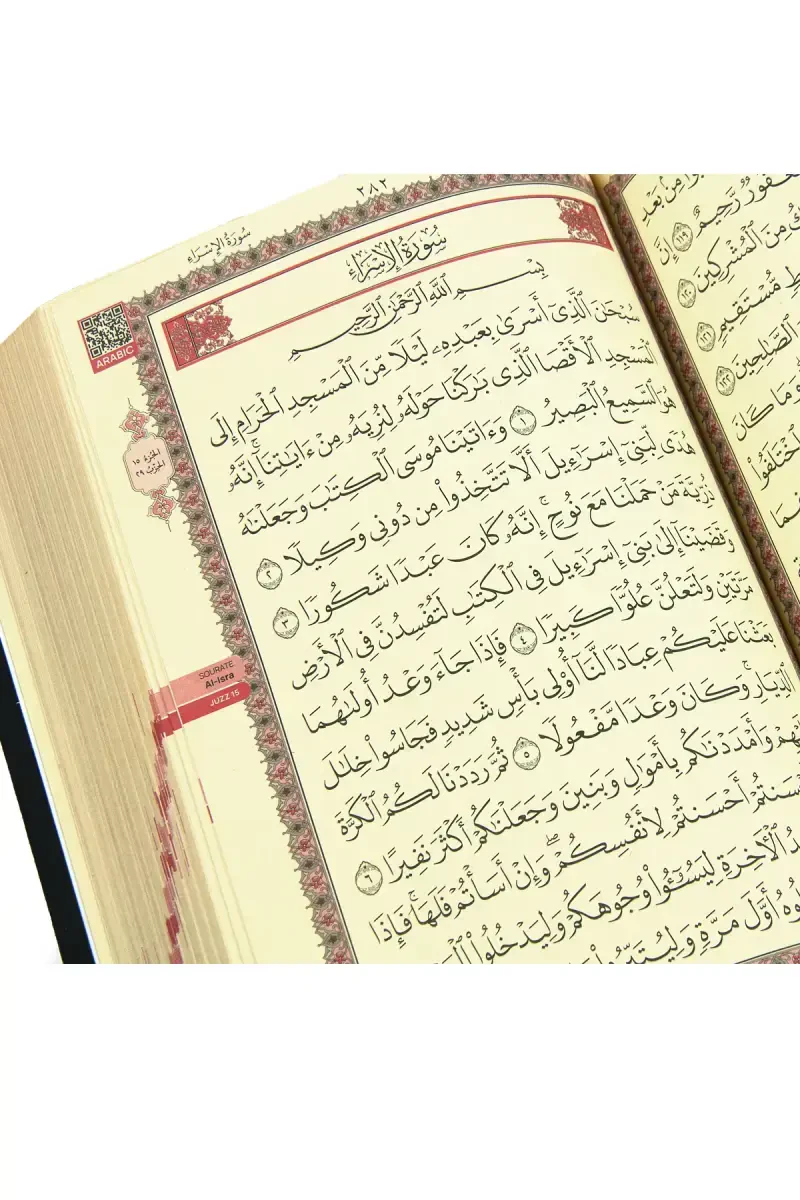 ٢٨٢
سُورَةُ الإِسْرَاءِ
ARABIC
الجُزْءُ ١٥
الحِزْبُ ٢٩
سُورَةُ الإِسْرَاءِ
بِسْمِ اللَّهِ الرَّحْمَٰنِ الرَّحِيمِ
سُبْحَٰنَ ٱلَّذِىٓ أَسْرَىٰ بِعَبْدِهِۦ لَيْلًا مِّنَ ٱلْمَسْجِدِ ٱلْحَرَامِ إِلَى
ٱلْمَسْجِدِ ٱلْأَقْصَا ٱلَّذِى بَٰرَكْنَا حَوْلَهُۥ لِنُرِيَهُۥ مِنْ ءَايَٰتِنَآ ۚ إِنَّهُۥ
هُوَ ٱلسَّمِيعُ ٱلْبَصِيرُ ١ وَءَاتَيْنَا مُوسَى ٱلْكِتَٰبَ وَجَعَلْنَٰهُ
هُدًى لِّبَنِىٓ إِسْرَٰٓءِيلَ أَلَّا تَتَّخِذُوا۟ مِن دُونِى وَكِيلًا ٢
ذُرِّيَّةَ مَنْ حَمَلْنَا مَعَ نُوحٍ ۚ إِنَّهُۥ كَانَ عَبْدًا شَكُورًا ٣
وَقَضَيْنَآ إِلَىٰ بَنِىٓ إِسْرَٰٓءِيلَ فِى ٱلْكِتَٰبِ لَتُفْسِدُنَّ فِى ٱلْأَرْضِ
مَرَّتَيْنِ وَلَتَعْلُنَّ عُلُوًّا كَبِيرًا ٤ فَإِذَا جَآءَ وَعْدُ أُولَىٰهُمَا
بَعَثْنَا عَلَيْكُمْ عِبَادًا لَّنَآ أُو۟لِى بَأْسٍ شَدِيدٍ فَجَاسُوا۟ خِلَٰلَ
ٱلدِّيَارِ ۚ وَكَانَ وَعْدًا مَّفْعُولًا ٥ ثُمَّ رَدَدْنَا لَكُمُ ٱلْكَرَّةَ
وَأَمْدَدْنَٰكُم بِأَمْوَٰلٍ وَبَنِينَ وَجَعَلْنَٰكُمْ أَكْثَرَ نَفِيرًا ٦
أَحْسَنتُمْ لِأَنفُسِكُمْ ۖ وَإِنْ أَسَأْتُمْ فَلَهَا ۚ فَإِذَا
ٱلْءَاخِرَةِ لِيَسُۥٓـُٔوا۟ وُجُوهَكُمْ وَلِيَدْخُلُوا۟
أَوَّلَ مَرَّةٍ
SOURATE
Al-Isra
JUZZ 15
مِنۢ بَعْدِ
رَّحِيمٌ ١١٩ إِنَّ
مِنَ ٱلْمُشْرِكِينَ ١٢٠
مُّسْتَقِيمٍ ١٢١
ٱلصَّٰلِحِينَ ١٢٢
وَمَا كَانَ
ٱخْتَلَفُوا۟